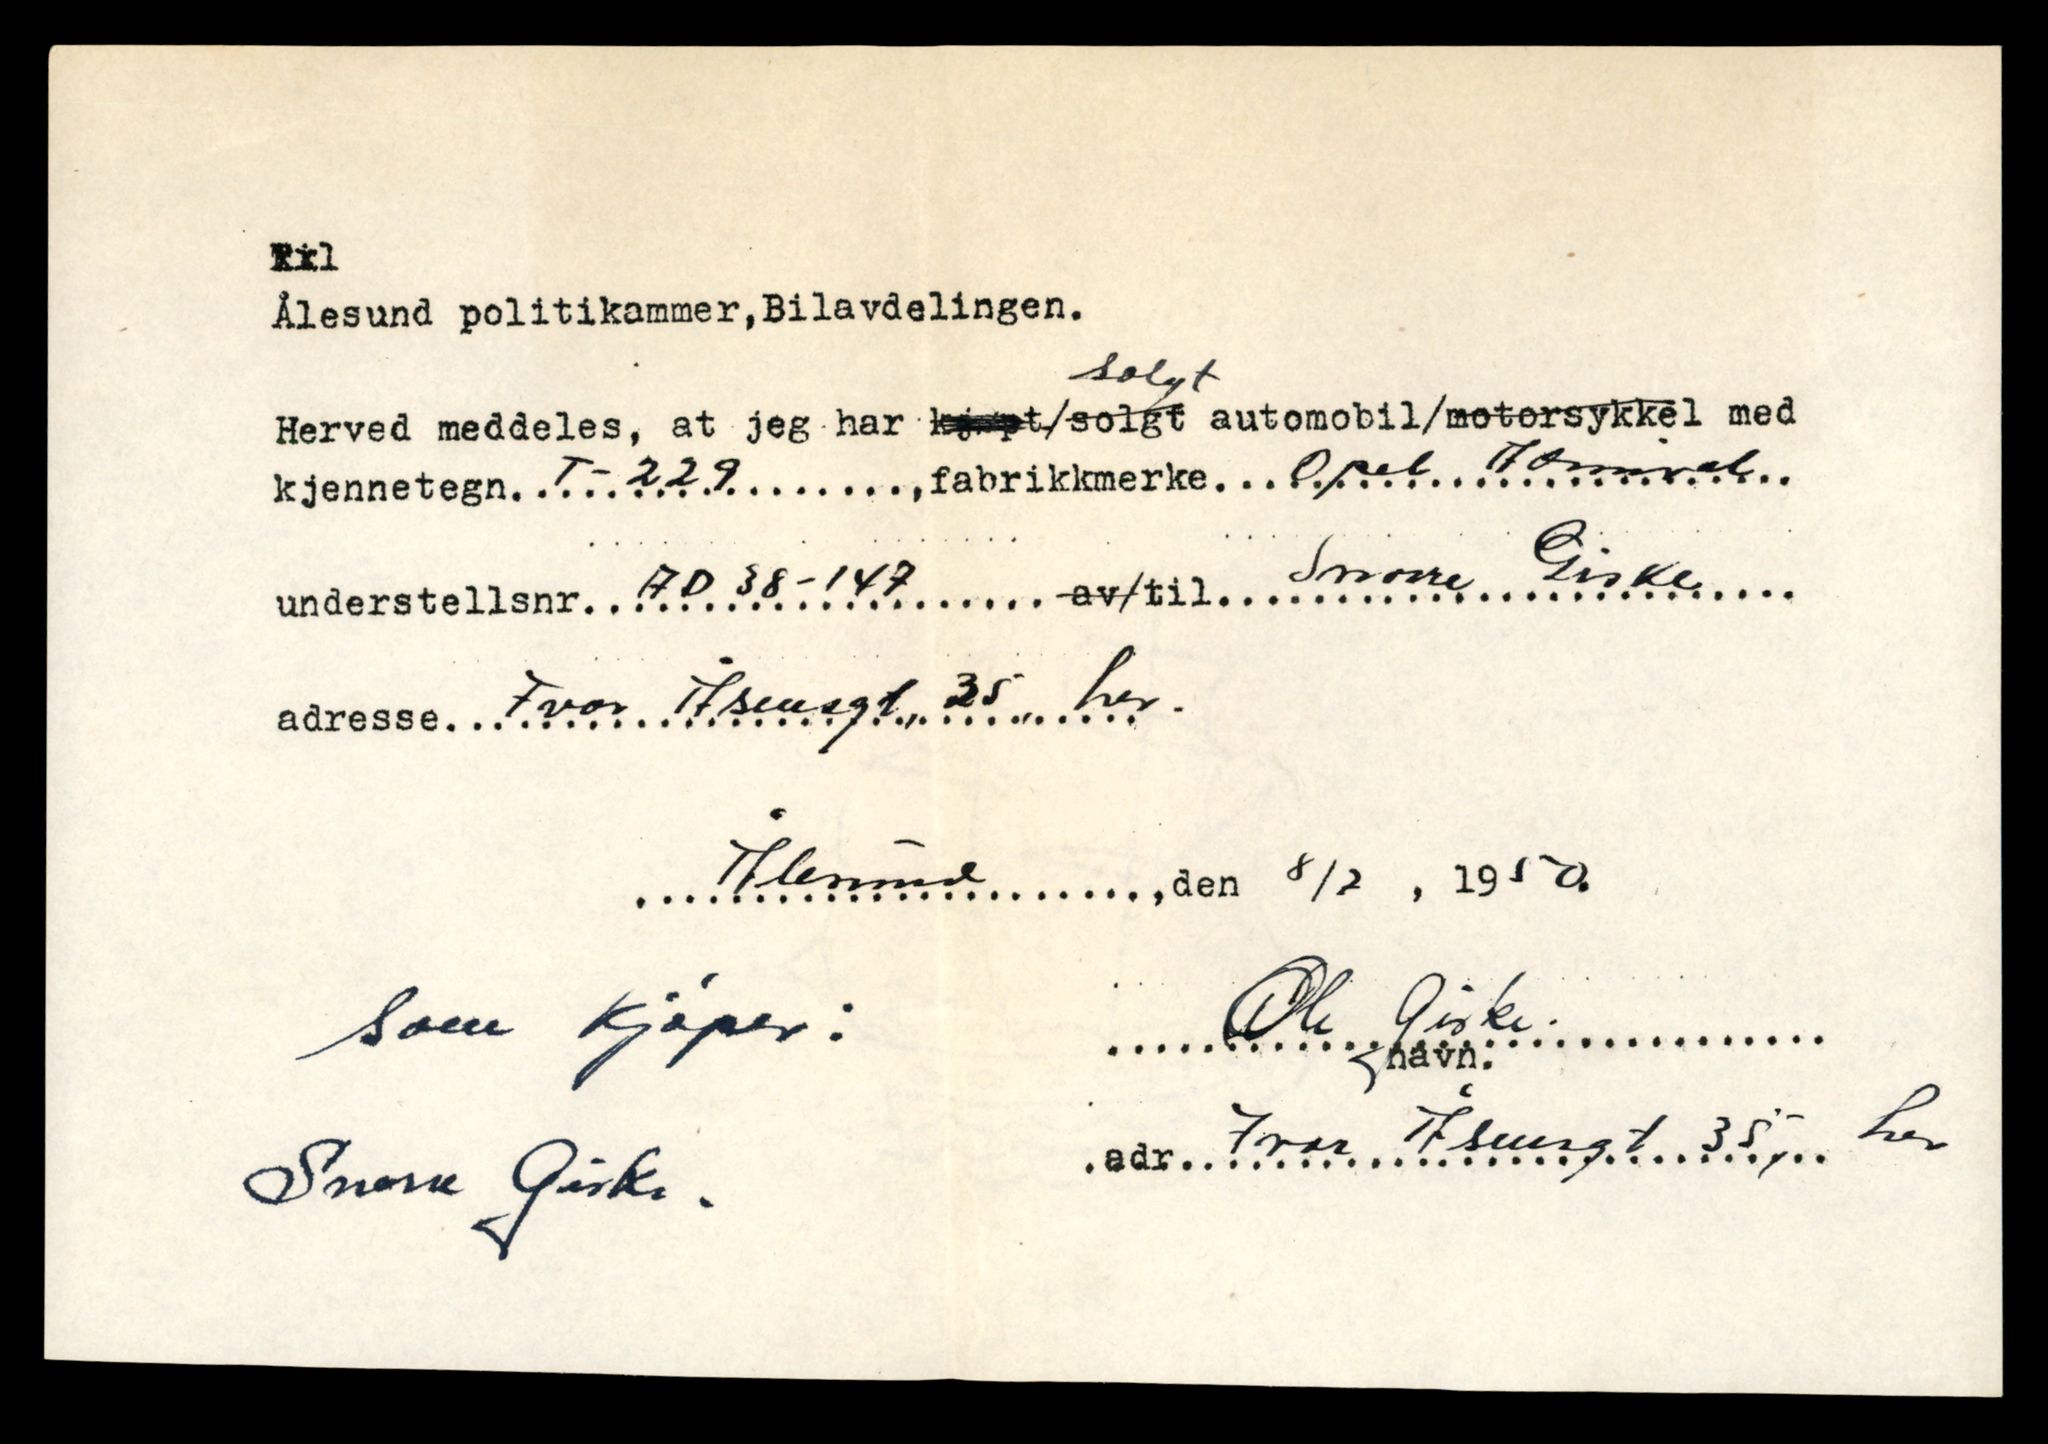 Til
Ålesund politikammer,Bilavdelingen.
solgt
Herved meddeles, at jeg har kjøpt/solgt automobil/motorsykkel med
kjennetegn. T-229 ,fabrikkmerke. Opel Admiral
understellsnr. AD 38-147 av/til Snorre Giske
adresse. Ivar Åsensgt, 35, her.
Ålesund ,den 8/2 , 1950.
Som kjøper: Ole Giske.
navn.
Snorre Giske. adr. Ivar Åsensgt 35, her